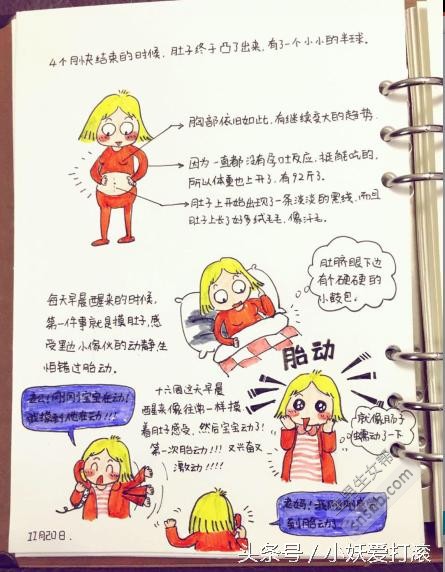 4个月快结束的时候，肚子终于凸了出来，有了一个小小的半球。
胸部依旧如此，有继续变大的趋势。
因为一直都没有孕吐反应，挺能吃的，
所以体重也上升了，有92斤了。
肚子上开始出现了一条淡淡的黑线，而且
肚子上长了好多绒毛毛，像汗毛。
肚脐眼下边
有个硬硬的
小鼓包。
每天早晨醒来的时候，
第一件事就是摸肚子，感
受里边小傢伙的动静，生
怕错过胎动。
胎动
老公！刚刚宝宝在动！
我摸到他在动！！！
十六周这天早晨
醒来像往常一样摸
着肚子感受，然后宝宝动了！
第一次胎动！！！！又兴奋又
激动！！！！
就像肠子
蠕动了一下
老妈！我刚刚感
到胎动了！
11月20日.
头条号 / 小妖爱打滚